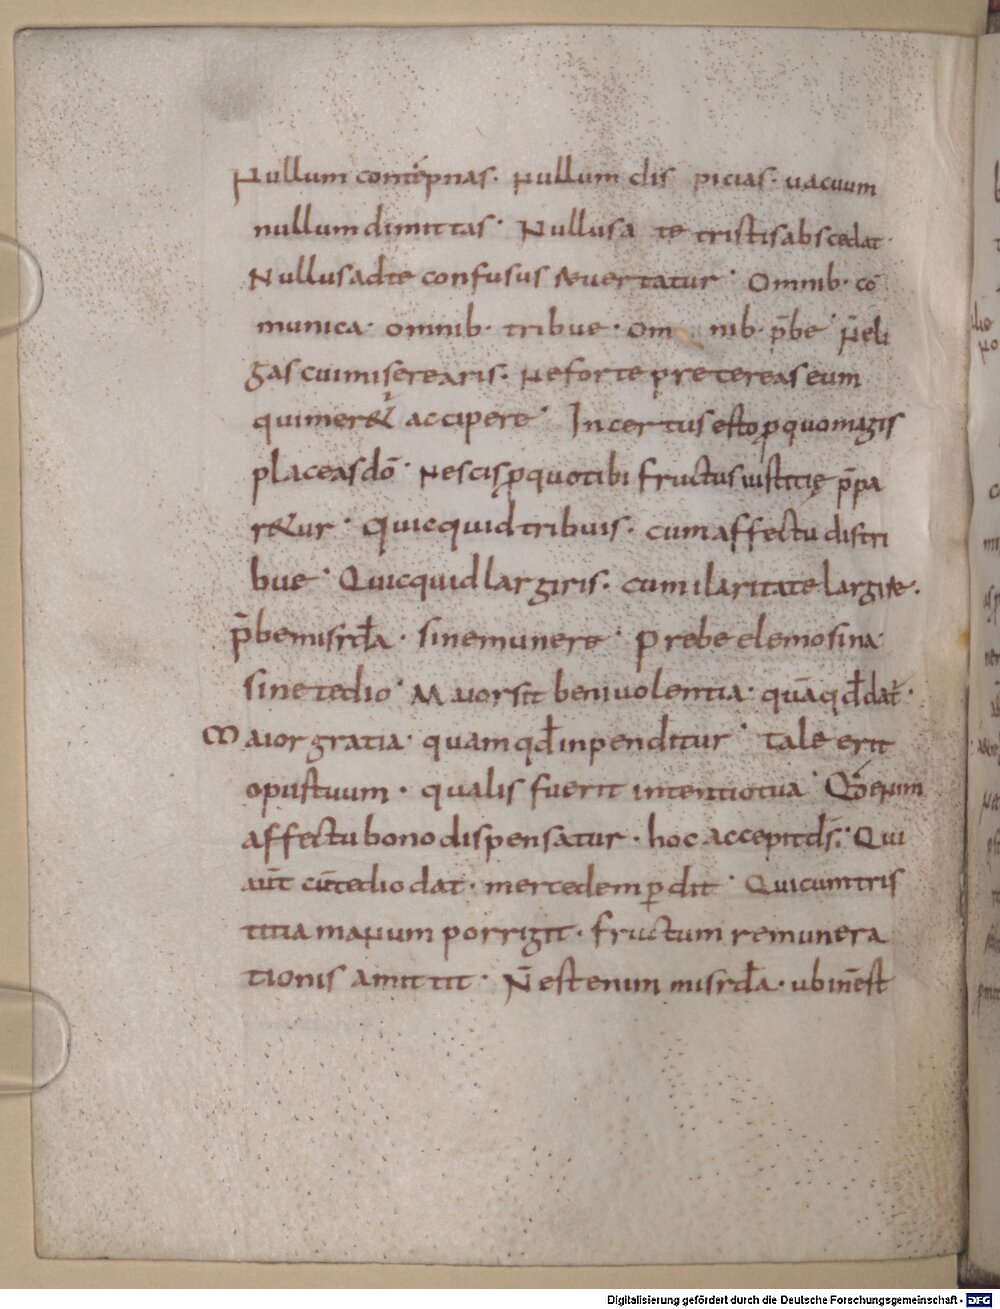 Nullum contēpnas. Nullum dis picias. vacuum
nullum dimittas. Nullus a te tristis abscedat.
Nullus ad te confusus revertatur. Omnib. cō
munica. omnib. tribue. Om nib. p̄be. N̄ eli
gas cui miserearis. Ne forte pretereas eum
qui mer& accipere. Incertus esto p quo magis
placeas dō. Nescis p quo tibi fructus iustitię p̄pa
r&ur. Quicquid tribuis. cum affectu distri
bue. Quicquid largiris. cum ilaritate largire.
p̄be misrđa. sine munere. Prebe elemosina
sine tedio. Maior sit benivolentia. quā qđ dat̄.
Maior gratia. quam qđ inpenditur. tale erit
opus tuum. qualis fuerit intentio tua. Qđ enim
affectu bono dispensatur. hoc accepit d̄s. Qui
aūt cū tedio dat. mercedem pdit. Qui cum tris
titia manum porrigit. fructum remunera
tionis amittit. N̄ est enim misrđa. ubi n̄ est
Digitalisierung gefördert durch die Deutsche Forschungsgemeinschaft - DFG